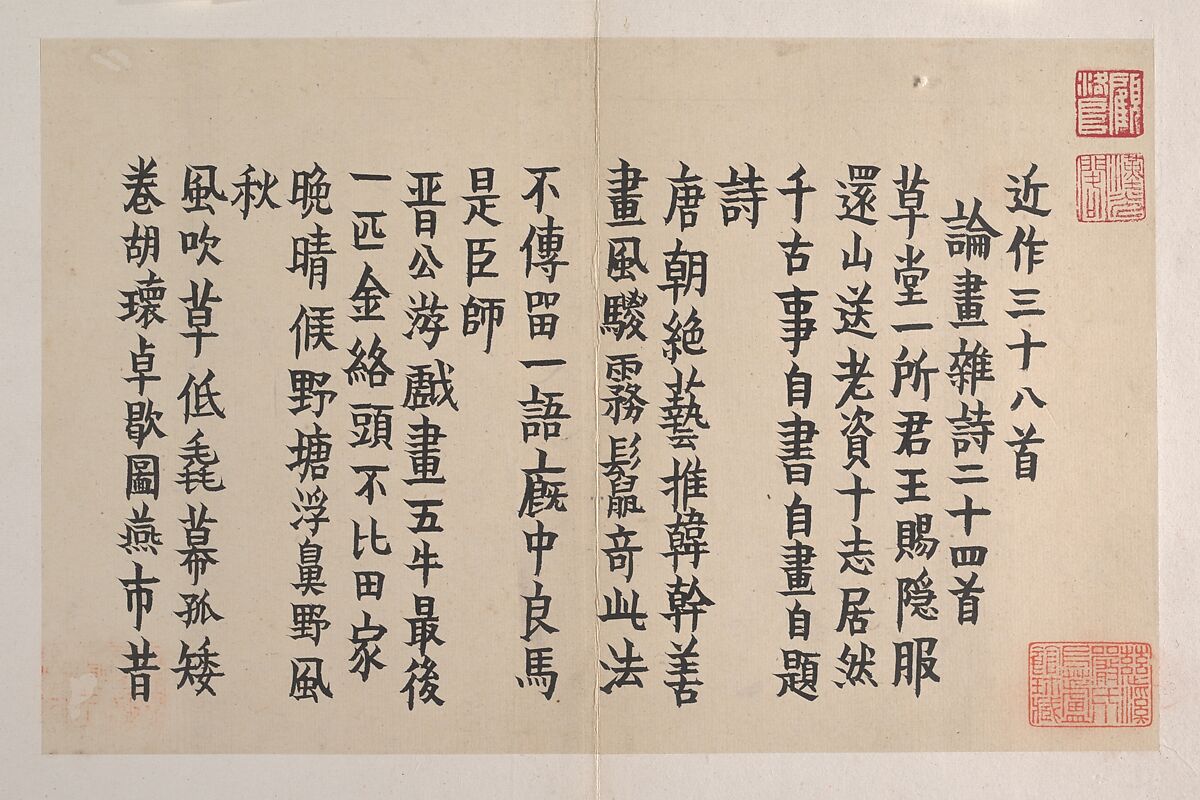 近作三十八首
論畫雜詩二十四首
草堂一所君王賜隱服
還山送老資十志居然
千古事自書自畫自題
詩
唐朝絕藝推韓幹善
畫風騣霧鬛奇此法
不傳留一語廄中良馬
是臣師
晋公游戲畫五牛最後
一匹金絡頭不比田家
晚晴候野塘浮鼻野風
秋
風吹草低毳幕孤矮
卷胡瓌卓歇圖燕市昔